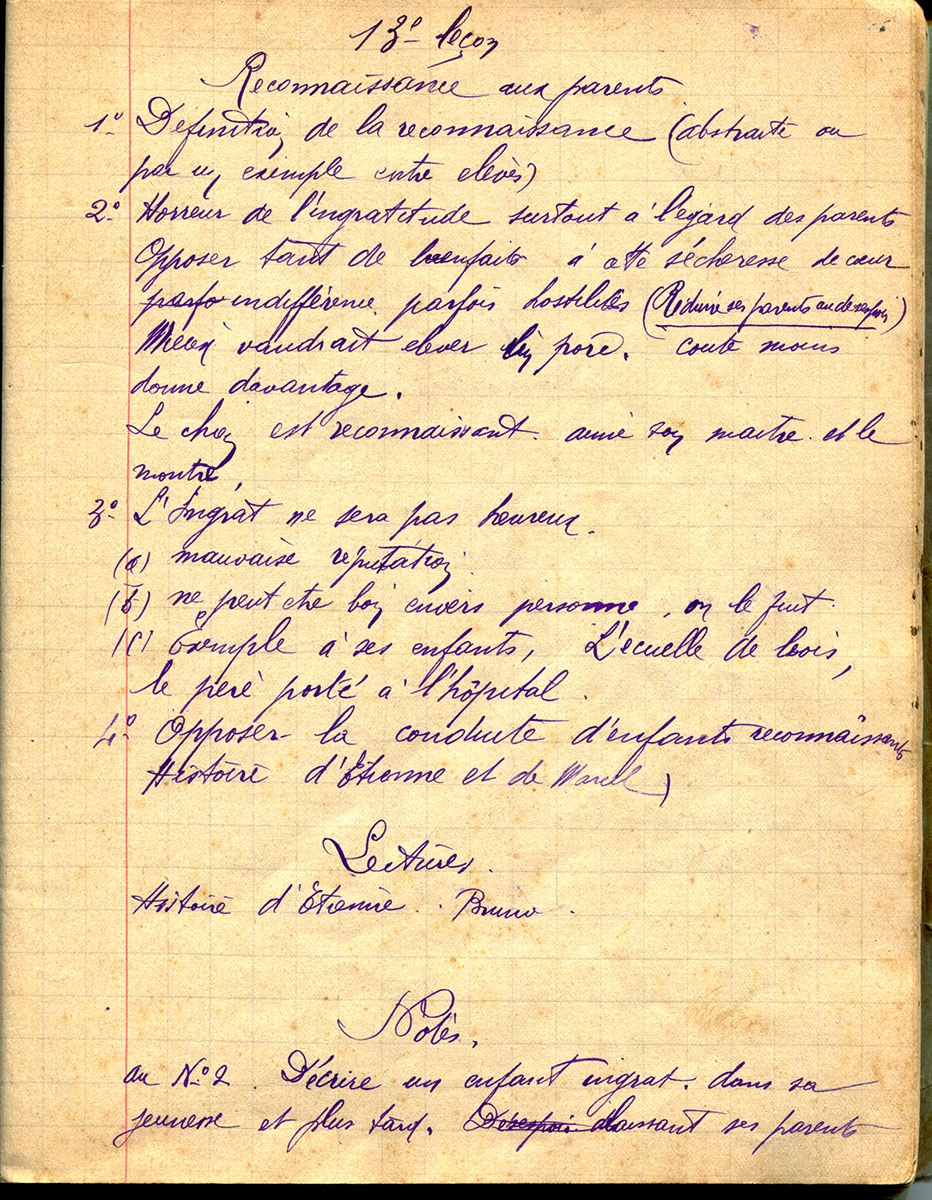 13e leçon
Reconnaissance aux parents
1o Définition de la reconnaissance (abstraite ou
par un exemple entre élèves)
2o Horreur de l'ingratitude surtout à l'égard des parents
Opposer tant de bienfaits à cette sécheresse de cœur
parfo indifférence parfois hostilités (Réduire ses parents au désespoir)
Mieux vaudrait élever un porc. coute moins
donne davantage.
Le chien est reconnaissant. aime son maitre et le
montre,
3o L'Ingrat ne sera pas heureux.
(a) mauvaise réputation
(b) ne peut être bon envers personne, on le fuit.
(c) Exemple à ses enfants, L'écuelle de bois,
le père porté à l'hôpital.
4o Opposer la conduite d'enfants reconnaissants
Histoire d'Etienne et de )
Lectures.
Histoire d'Etienne. Bruno.
Notes.
au No 2. Décrire un enfant ingrat. dans sa
jeunesse et plus tard. Désespoir ses parents